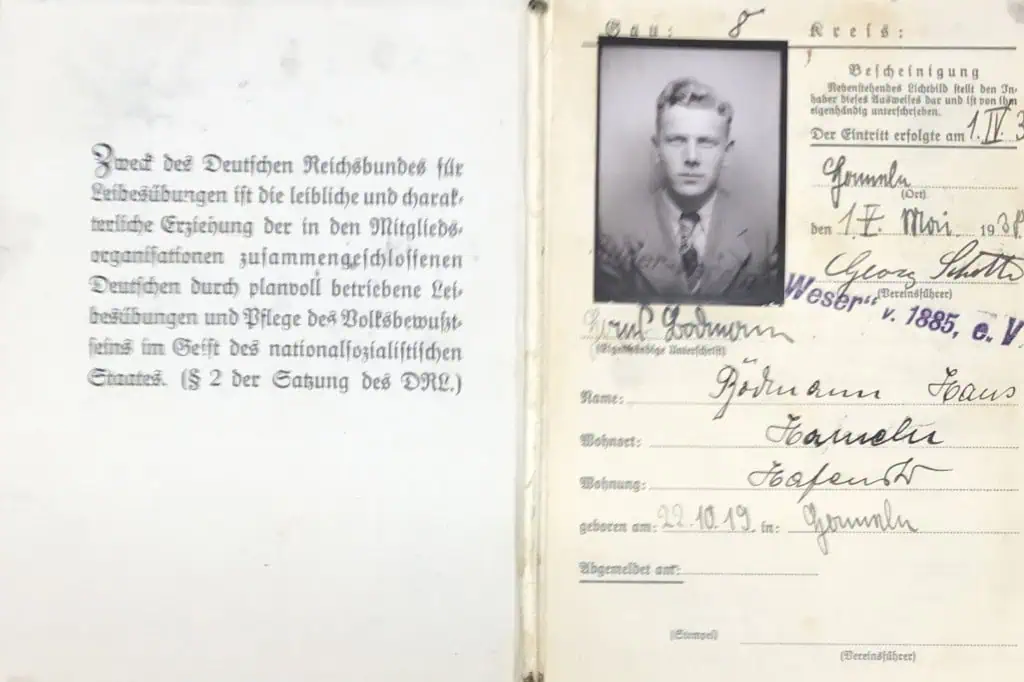 Zweck des Deutschen Reichsbundes für
Leibesübungen ist die leibliche und charak-
terliche Erziehung der in den Mitglieds-
organisationen zusammengeschlossenen
Deutschen durch planvoll betriebene Lei-
besübungen und Pflege des Volksbewußt-
seins im Geist des nationalsozialistischen
Staates. (§ 2 der Satzung des DRL.)
Gau: 8 Kreis:
Bescheinigung
Nebenstehendes Lichtbild stellt den In-
haber dieses Ausweises dar und ist von ihm
eigenhändig unterschrieben.
Der Eintritt erfolgte am 1. IV. 3
Hameln
(Ort)
den 1 Mai 1938
Georg
(Vereinsführer)
Weser" v. 1885, e. V
(Eigenhändige Unterschrift)
Name: Bödmann Hans
Wohnort: Hameln
Wohnung: Hafenstr
geboren am: 22.10.19. in: Hameln
Abgemeldet am:
(Stempel)
(Vereinsführer)